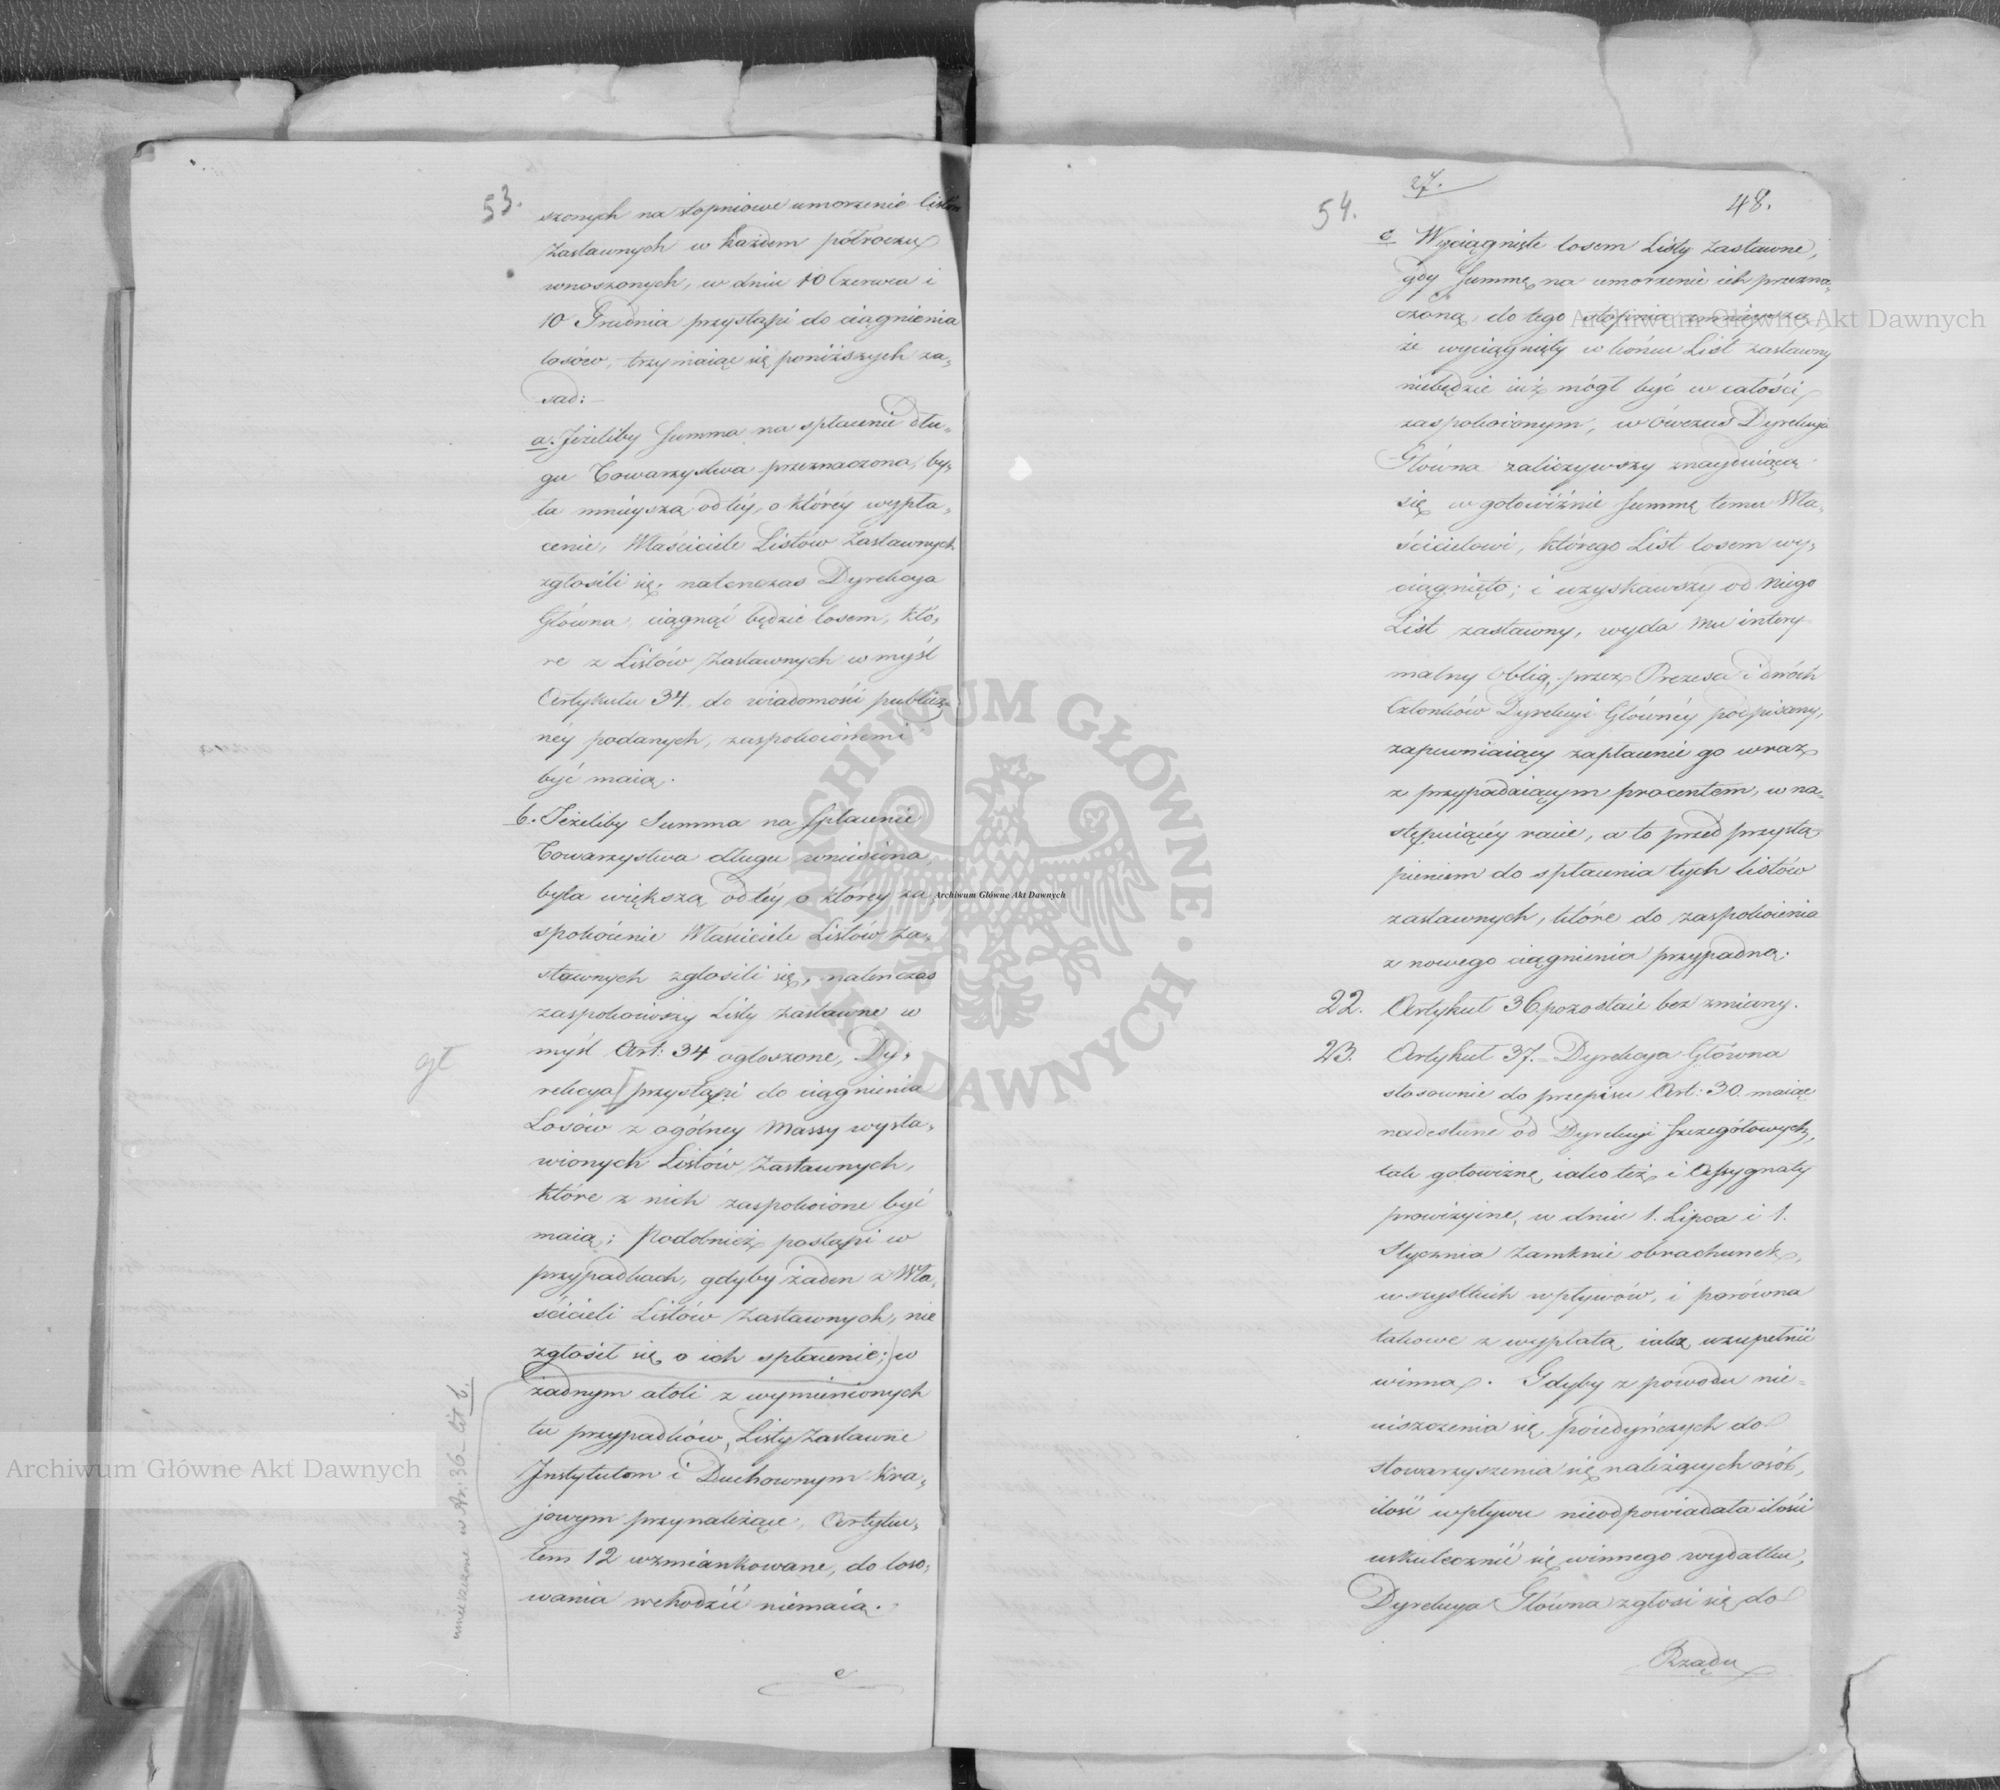 53.
szonych na stopniowe umorzenie listów
Zastawnych w każdem półroczu
wnoszonych, w dniu 10 Czerwca i
10 Grudnia przystąpi do ciągnienia
losów, trzymaiąc się poniższych za„
sad:
a. Jeżeliby Summa na spłacenie dłu„
gu Towarzystwa przeznaczona, by„
ła mnieysza od téy, o któréy wypła„
cenie, Właściciele Listów Zastawnych
zgłosili się, natenczas Dyrekcya
Główna, ciągnąć będzie losem, któ„
re z Listów Zastawnych w myśl
Artykułu 34. do wiadomości publicz„
néy podanych, zaspokoionemi
być maią.
b. Jeżeliby Summa na spłacenie
Towarzystwa długu wniesiona,
była większą od téy o któréy za„
spokoienie Właściciele Listów Za„
stawnych zgłosili się, natenczas
zaspokoiwszy Listy Zastawne w
myśl Art: 34 ogłoszone, Dy„
gł
rekcya przystąpi do ciągnienia
Losów z ogólney Massy wysta„
wionych Listów Zastawnych,
które z nich zaspokoione być
maią; Podobnież postąpi w
przypadkach, gdyby żaden z Wła„
ścicieli Listów Zastawnych, nie
zgłosił się o ich spłacenie; w
żadnym atoli z wymienionych
tu przypadków, Listy Zastawne
Instytutom i Duchownym Kra„
jowym przynależące, Artyku„
łem 12 wzmiankowane, do loso„
wania wchodzić niemaią.
c
umieszczone w Ar: 36 lit b.
27.
54.
48.
c Wyciągnięte losem Listy Zastawne,
gdy Summę na umorzenie ich przezna„
czoną, do tego stopnia zmnieyszą
że wyciągnięty w końcu List zastawny
niebędzie iuż mógł być w całości
zaspokoionym, wówczas Dyrekcya
Główna zaliczywszy znayduiącą
się w gotowiźnie Summę temu Wła„
ścicielowi, którego List losem wy„
ciągnięto; i uzyskawszy od niego
List zastawny, wyda mu intery
malny oblig, przez Prezesa i dwóch
Członków Dyrekcyi Głównéy podpisany,
zapewniaiący zapłacenie go wraz
z przypadaiącym procentem, w na„
stępuiącéy racie, a to przed przystą
pieniem do spłacenia tych listów
zastawnych, które do zaspokoienia
z nowego ciągnienia przypadną.
22. Artykuł 36. pozostaie bez zmiany.
23. Artykuł 37. Dyrekcya Główna
stosownie do przepisu Art: 30. maiąc
nadesłane od Dyrekcyi Szczegółowych,
tak gotowiznę, iako też i Assygnaty
prowizyine, w dniu 1. Lipca i 1.
Stycznia zamknie obrachunek,
wszystkich wpływów, i porówna
takowe z wypłatą iaką uzupełnić
winna. Gdyby z powodu nie„
uiszczenia się poiedyńczych do
stowarzyszenia się należących osób,
ilość wpływu nieodpowiadała ilości
uskutecznić się winnego wydatku,
Dyrekcya Główna zgłosi się do
Rządu
Archiwum Główne Akt Dawnych
Archiwum Główne Akt Dawnych
Archiwum Główne Akt Dawnych
ARCHIWUM GŁÓWNE • AKT DAWNYCH •